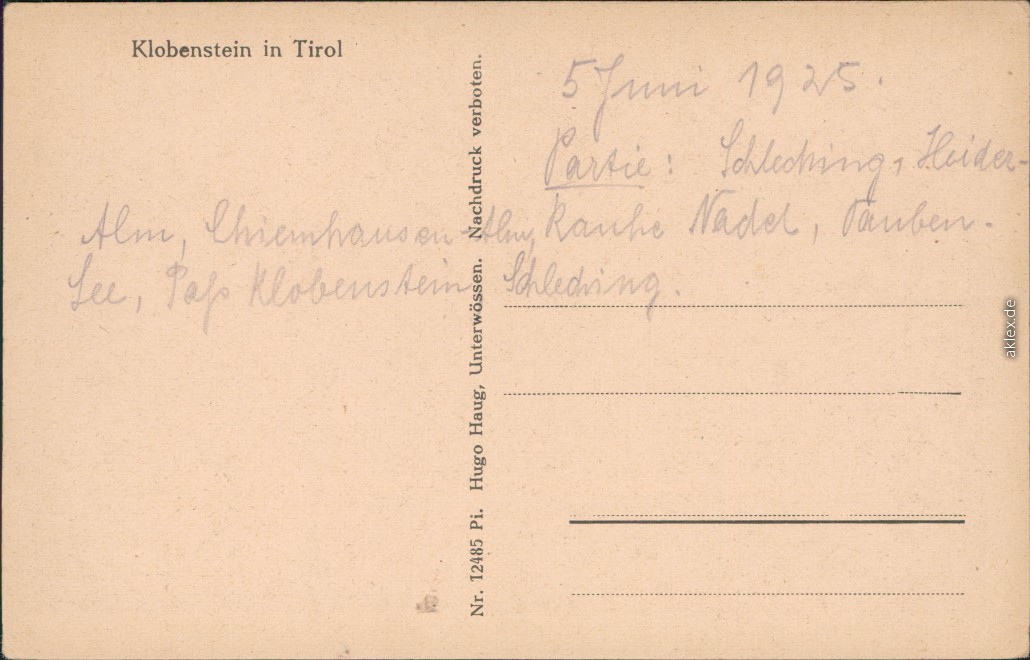 Klobenstein in Tirol
5 Juni 1925.
Partie: Schleching, Haider-
Alm, Chiemhausen-Alm, Rauhe Nadel, Tauben-
See, Paß Klobenstein Schleching.
Nr. 12485 Pi. Hugo Haug, Unterwössen. Nachdruck verboten.
aklex.de